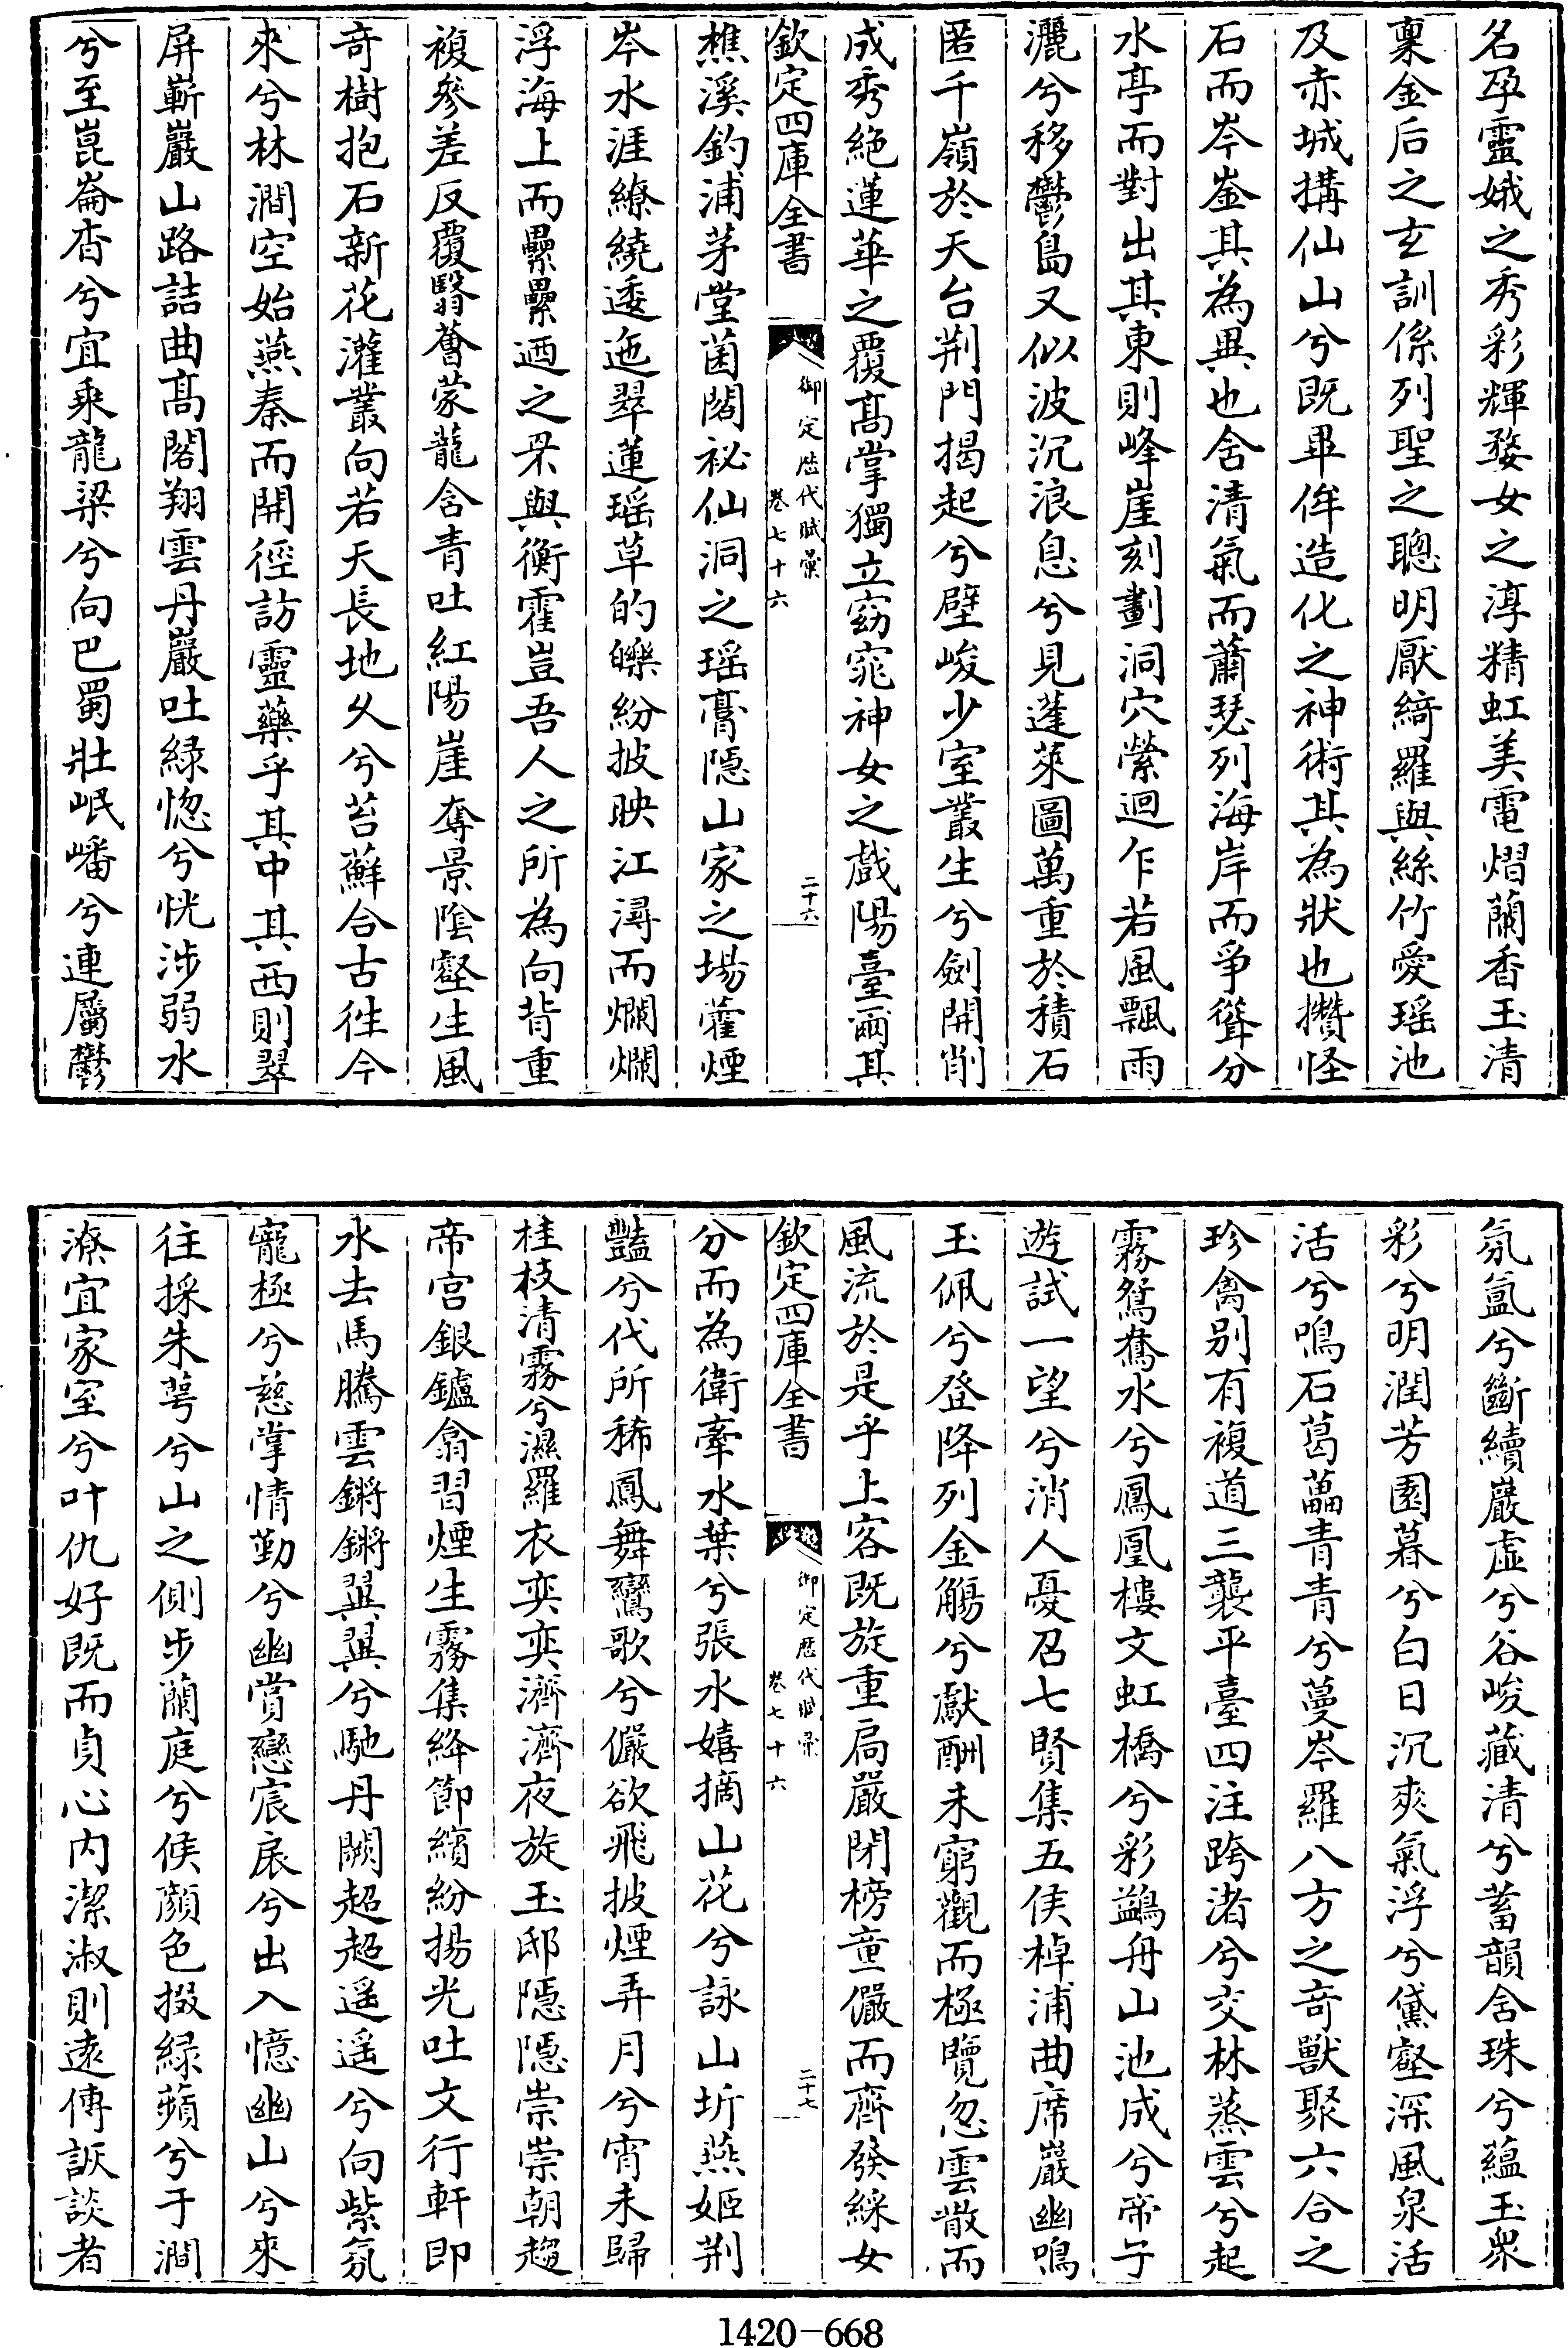 名孕靈娥之秀彩輝婺女之淳精虹美電熠蘭香玉清
稟金后之玄訓係列聖之聰明厭綺羅與絲竹愛瑶池
及赤城搆仙山兮既畢侔造化之神術其為狀也攢怪
石而岑崟其為異也含清氣而蕭瑟列海岸而爭聳分
水亭而對出其東則峰崖刻劃洞穴縈迴乍若風飄雨
灑兮移鬱島又似波沉浪息兮見蓬萊圖萬重於積石
匿千嶺於天台荆門揭起兮壁峻少室叢生兮劍開削
成秀絶蓮華之覆髙掌獨立窈窕神女之戲陽臺爾其
欽定四庫全書
御定歴代賦彙
卷七十六
二十六
樵溪釣浦茅堂菌閣祕仙洞之瑶膏隱山家之場藿煙
岑水涯繚繞逶迤翠蓮瑶草的皪紛披映江潯而爛爛
浮海上而纍纍迺之罙與衡霍豈吾人之所為向背重
複參差反覆翳薈蒙蘢含青吐紅陽崖奪景陰壑生風
竒樹抱石新花灌叢向若天長地乆兮苔蘚合古徃今
來兮林澗空始燕秦而開徑訪靈藥乎其中其西則翠
屏嶄巖山路詰曲髙閣翔雲丹巖吐緑惚兮恍涉弱水
兮至崑崙杳兮宜乘龍梁兮向巴蜀壯岷嶓兮連屬鬱
氛氳兮斷續巖虚兮谷峻藏清兮蓄韻含珠兮藴玉衆
彩兮明潤芳園暮兮白日沉爽氣浮兮黛壑深風泉活
活兮鳴石葛藟青青兮蔓岑羅八方之竒獸聚六合之
珍禽别有複道三襲平臺四注跨渚兮交林蒸雲兮起
霧鴛鴦水兮鳳凰樓文虹橋兮彩鷁舟山池成兮帝子
遊試一望兮消人憂召七賢集五侯棹浦曲席巖幽鳴
玉佩兮登降列金觴兮獻酬未窮觀而極覽忽雲散而
風流於是乎上客既旋重扃嚴閉榜童儼而齊發綵女
欽定四庫全書
御定歴代賦彙
卷七十六
二十七
分而為衛牽水葉兮張水嬉摘山花兮詠山圻燕姬荆
豔兮代所稀鳳舞鸞歌兮儼欲飛披煙弄月兮宵未歸
桂枝清霧兮濕羅衣奕奕濟濟夜旋玉邸隱隱崇崇朝趨
帝宫銀鑪翕習煙生霧集絳節繽紛揚光吐文行軒即
水去馬騰雲鏘鏘翼翼兮馳丹闕超超遥遥兮向紫氛
寵極兮慈掌情勤兮幽賞戀宸扆兮出入憶幽山兮來
往採朱萼兮山之側步蘭庭兮候顔色掇緑蘋兮于澗
潦宜家室兮叶仇好既而貞心内潔淑則遠傳詼談者
1420-668